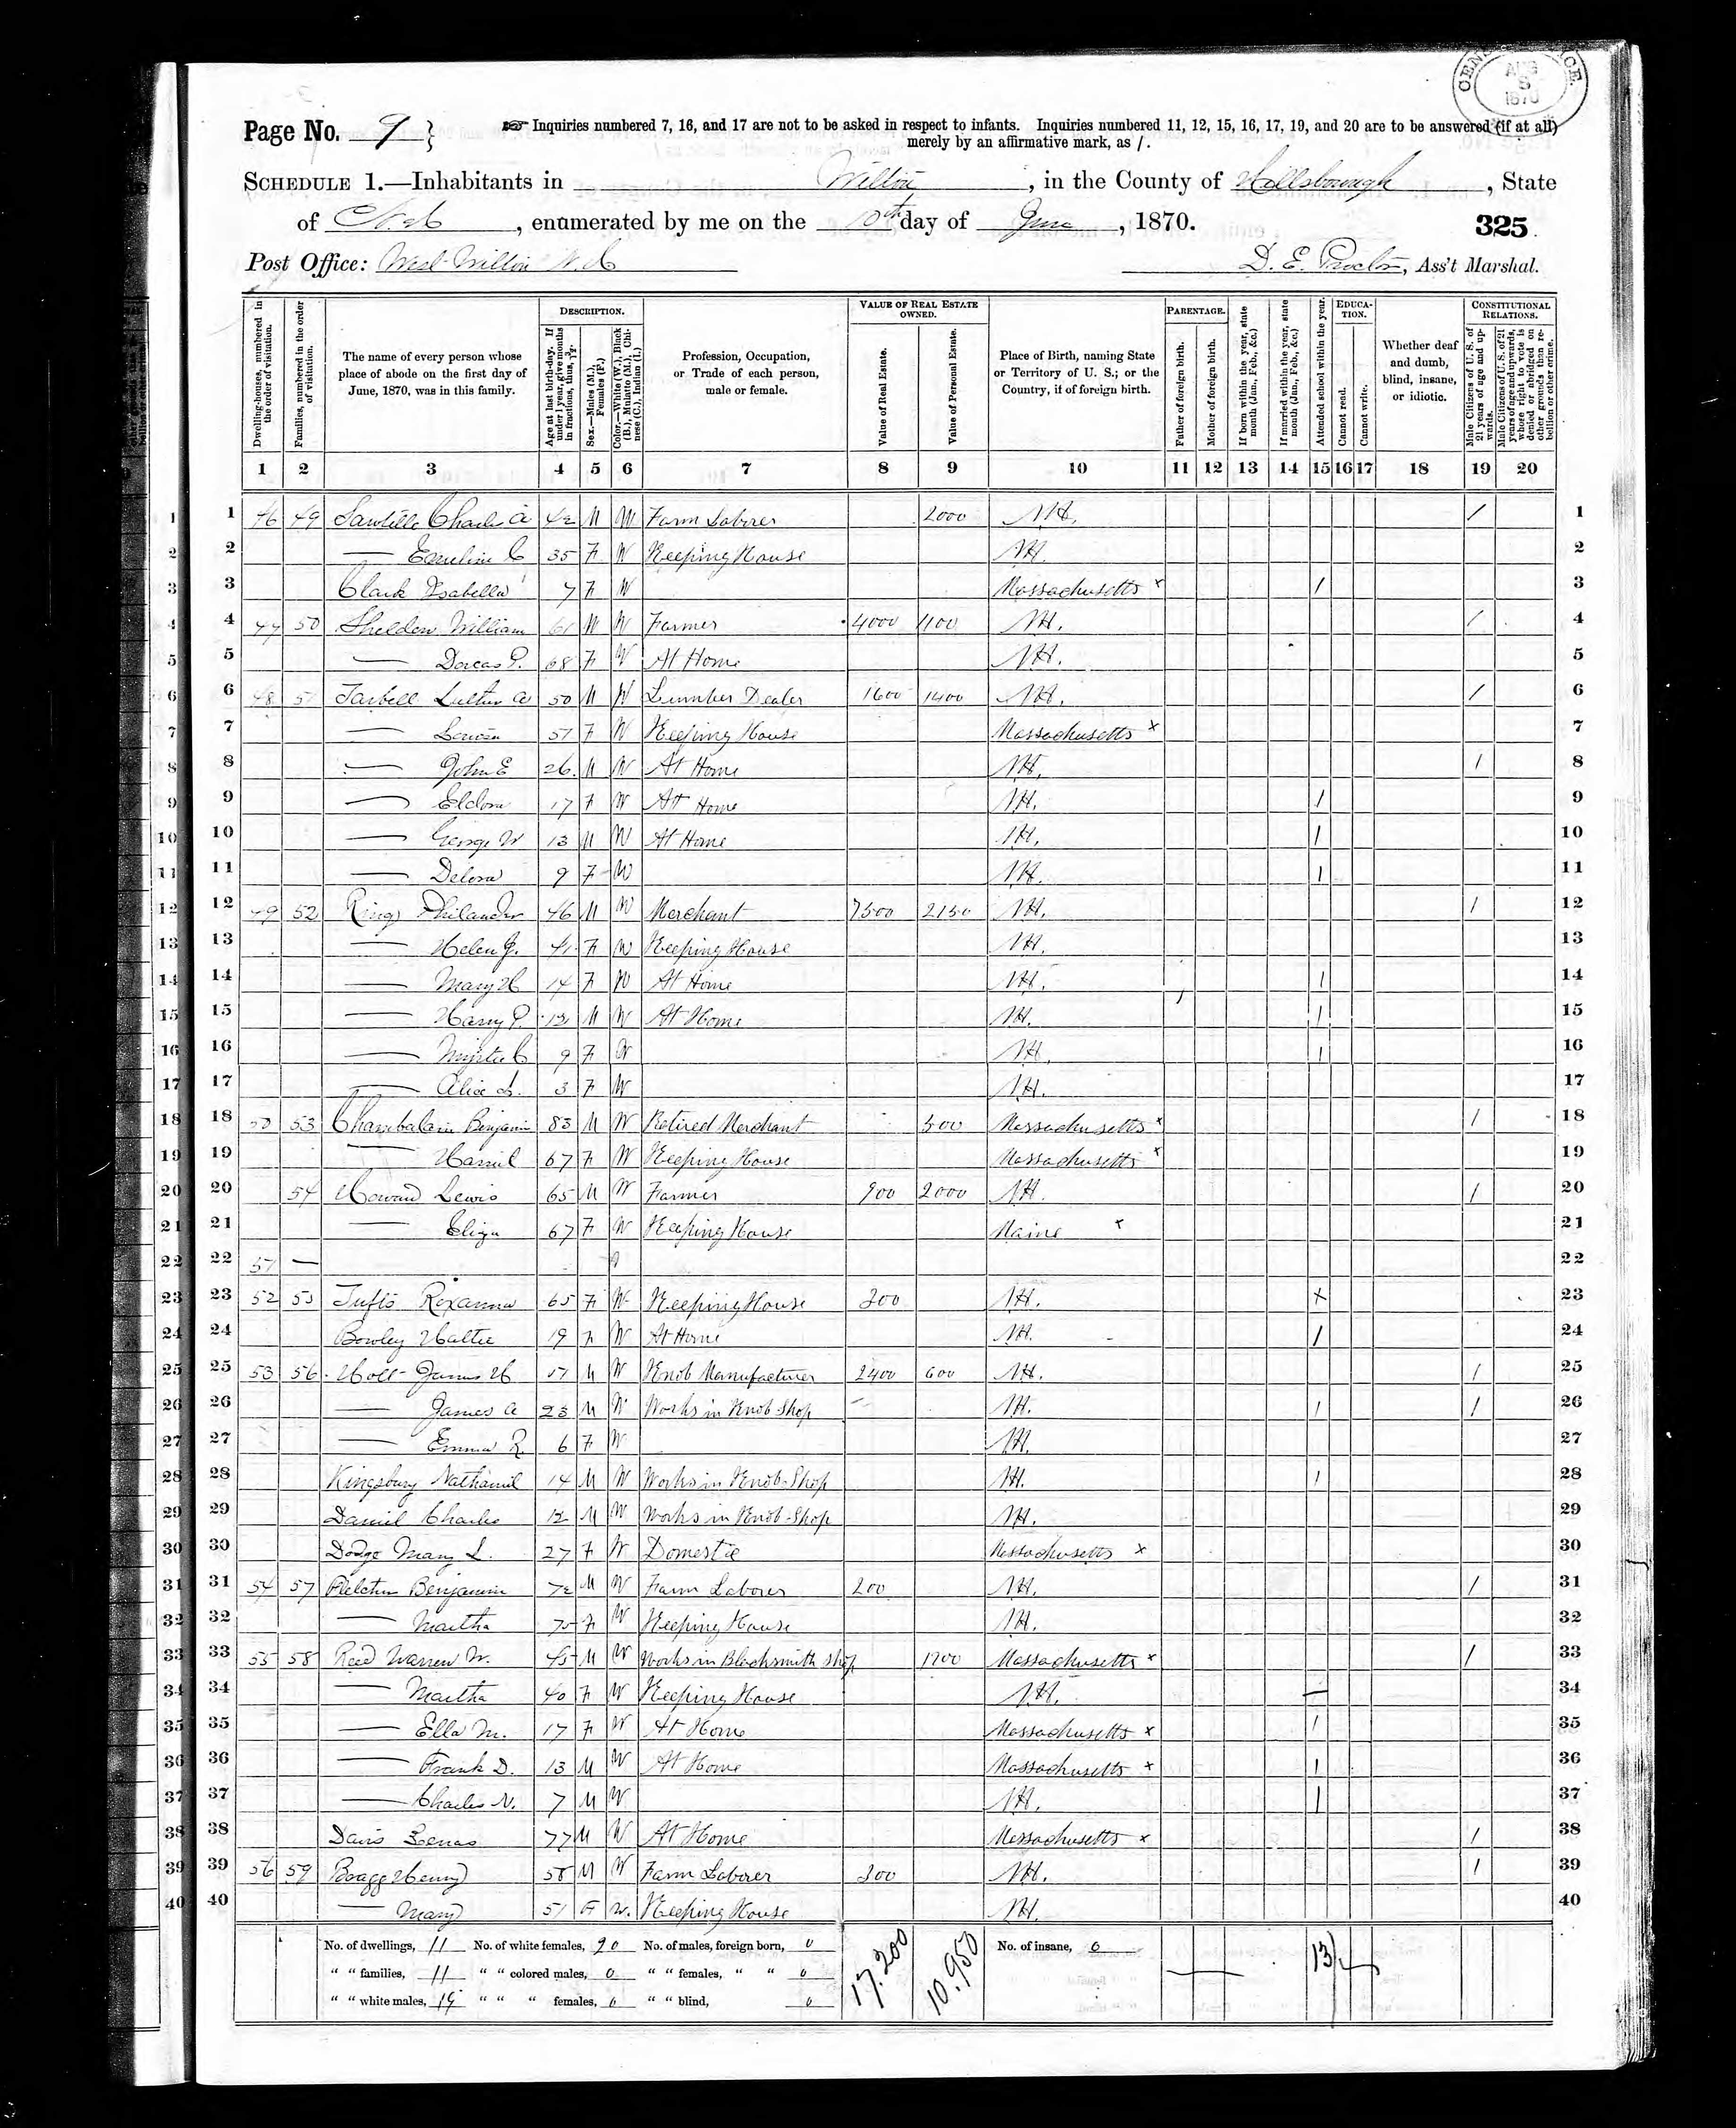 CENSUS OFFICE. AUG 8 1870
Page No. 9
Inquiries numbered 7, 16, and 17 are not to be asked in respect to infants. Inquiries numbered 11, 12, 15, 16, 17, 19, and 20 are to be answered (if at all)
merely by an affirmative mark, as /.
SCHEDULE 1.—Inhabitants in Wilton, in the County of Hillsborough, State
of N.H., enumerated by me on the 10th day of June, 1870.
325
Post Office: West Wilton N.H. D. E. Proctor, Ass't Marshal.
DESCRIPTION. VALUE OF REAL ESTATE OWNED. PARENTAGE. EDUCATION. CONSTITUTIONAL RELATIONS.
Dwelling-houses, numbered in the order of visitation.
Families, numbered in the order of visitation.
The name of every person whose place of abode on the first day of June, 1870, was in this family.
Age at last birth-day. If under 1 year, give months in fractions, thus, 3/12.
Sex.—Males (M.), Females (F.)
Color.—White (W.), Black (B.), Mulatto (M.), Chinese (C.), Indian (I.)
Profession, Occupation, or Trade of each person, male or female.
Value of Real Estate.
Value of Personal Estate.
Place of Birth, naming State or Territory of U. S.; or the Country, if of foreign birth.
Father of foreign birth.
Mother of foreign birth.
If born within the year, state month (Jan., Feb., &c.)
If married within the year, state month (Jan., Feb., &c.)
Attended school within the year.
Cannot read.
Cannot write.
Whether deaf and dumb, blind, insane, or idiotic.
Male Citizens of U. S. of 21 years of age and upwards.
Male Citizens of U. S. of 21 years of age and upwards, whose right to vote is denied or abridged on other grounds than rebellion or other crime.
1 2 3 4 5 6 7 8 9 10 11 12 13 14 15 16 17 18 19 20
1 46 49 Sawtelle Charles A 42 M W Farm Laborer 2000 N.H. / 1
2 — Emeline C 35 F W Keeping House N.H. 2
3 Clark Isabella 7 F W Massachusetts x / 3
4 47 50 Sheldon William 61 M W Farmer 4000 1100 N.H. / 4
5 — Dorcas P. 68 F W At Home N.H. 5
6 48 51 Tarbell Luther A 50 M W Lumber Dealer 1600 1400 N.H. / 6
7 — Louisa 51 F W Keeping House Massachusetts x 7
8 — John E 26 M W At Home N.H. / 8
9 — Eldora 17 F W At Home N.H. / 9
10 — George W 13 M W At Home N.H. / 10
11 — Delora 9 F W N.H. / 11
12 49 52 Ring Philander 46 M W Merchant 7500 2150 N.H. / 12
13 — Helen J. 41 F W Keeping House N.H. 13
14 — Mary H 14 F W At Home N.H. / 14
15 — Harry P. 12 M W At Home N.H. / 15
16 — Myrtie C 9 F W N.H. / 16
17 — Alice L. 3 F W N.H. 17
18 50 53 Chambalain Benjamin 83 M W Retired Merchant 500 Massachusetts x / 18
19 — 67 F W Keeping House Massachusetts x 19
20 54 Howard Lewis 65 M W Farmer 900 2000 N.H. / 20
21 — Eliza 67 F W Keeping House Maine x 21
22 51 — 22
23 52 55 Tufts Roxanna 65 F W Keeping House 200 N.H. x 23
24 Bowley Hattie 19 F W At Home N.H. / 24
25 53 56 Holt James H 51 M W Knob Manufacturer 2400 600 N.H. / 25
26 — James A 23 M W Works in Knob Shop N.H. / / 26
27 — Emma R. 6 F W N.H. 27
28 Kingsbury Nathaniel 14 M W Works in Knob-Shop N.H. / 28
29 Daniel Charles 12 M W Works in Knob-Shop N.H. 29
30 Dodge Mary L. 27 F W Domestic Massachusetts x 30
31 54 57 Fletcher Benjamin 72 M W Farm Laborer 200 N.H. / 31
32 — Martha 75 F W Keeping House N.H. 32
33 55 58 Reed Warren W. 45 M W Works in Blacksmith Shop 1200 Massachusetts x / 33
34 — Martha 40 F W Keeping House N.H. — 34
35 — Ella M. 17 F W At Home Massachusetts x / 35
36 — Frank D. 13 M W At Home Massachusetts x / 36
37 — Charles N. 7 M W N.H. / 37
38 Davis Zenas 77 M W At Home Massachusetts x / 38
39 56 59 Bragg Henry 58 M W Farm Laborer 300 N.H. / 39
40 — Mary 51 F W. Keeping House N.H. 40
No. of dwellings, 11 No. of white females, 20 No. of males, foreign born, 0 17.200 10.950 No. of insane, 0 13
" " families, 11 " " colored males, 0 " " females, " " 0
" " white males, 19 " " " females, 0 " " blind, 0